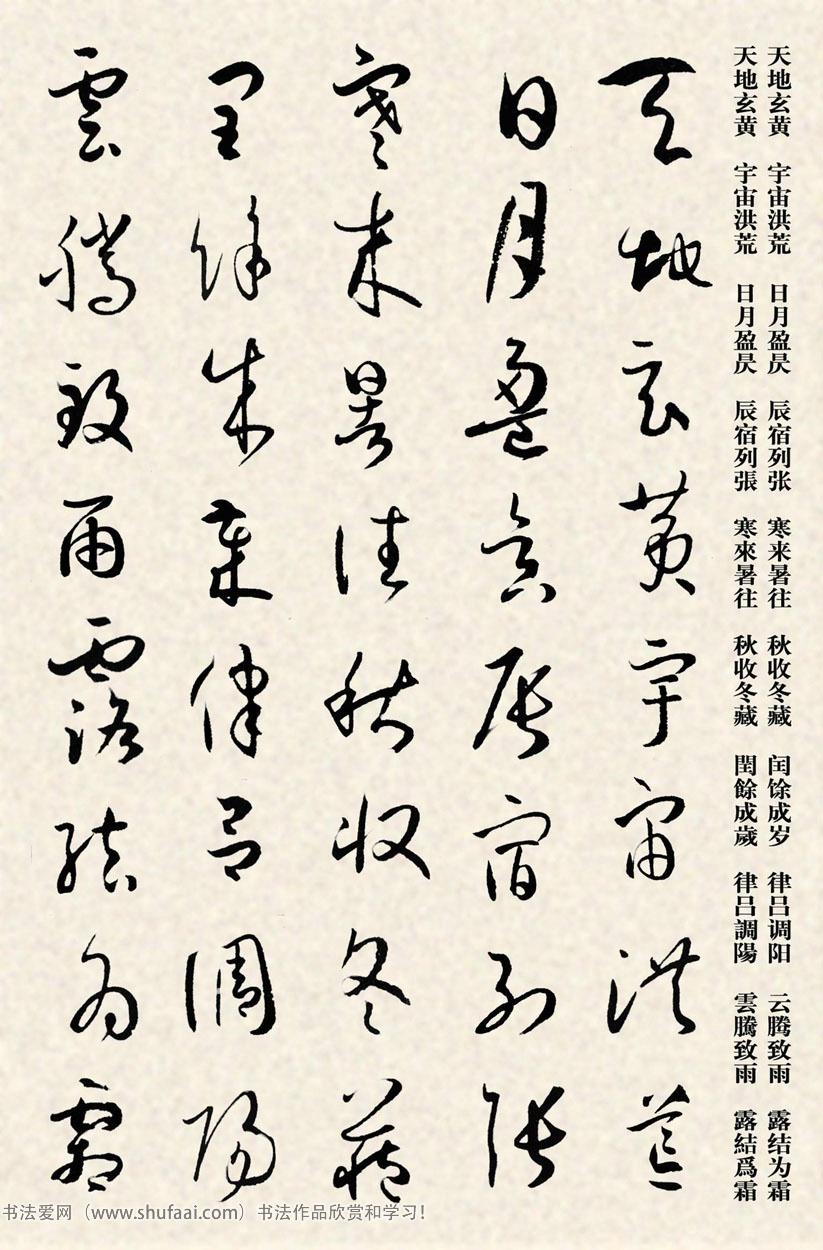 天地玄黄 宇宙洪荒 日月盈昃 辰宿列张 寒来暑往 秋收冬藏 闰馀成岁 律吕调阳 云腾致雨 露结为霜
天地玄黄 宇宙洪荒 日月盈昃 辰宿列張 寒來暑往 秋收冬藏 閏餘成歲 律吕調陽 雲騰致雨 露結爲霜
天地玄黄宇宙洪荒
日月盈昃辰宿列張
寒来暑往秋收冬藏
閏餘成歲律吕調陽
雲騰致雨露結為霜
书法爱网（www.shufaai.com）书法作品欣赏和学习！